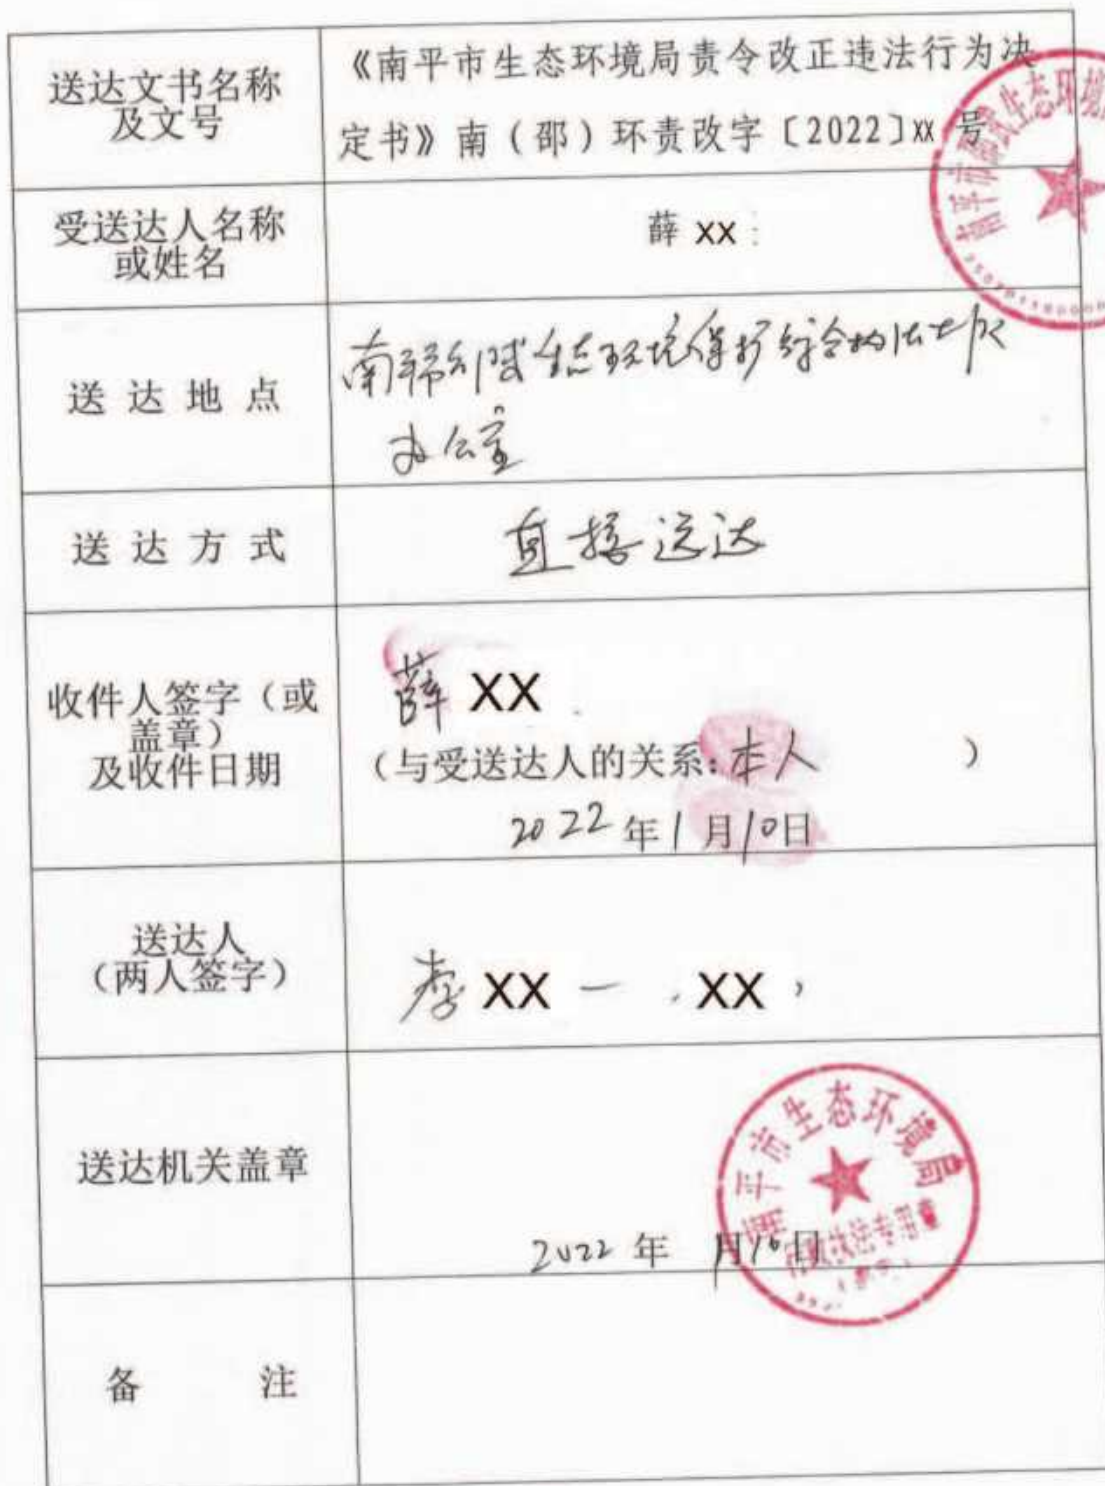 送达文书名称
及文号
《南平市生态环境局责令改正违法行为决
定书》南（邵）环责改字〔2022〕XX 号
受送达人名称
或姓名
薛 XX
送 达 地 点
南平市邵武生态环境保护综合执法大队
办公室
送 达 方 式
直接送达
收件人签字（或
盖章）
及收件日期
薛 XX
（与受送达人的关系:本人 ）
2022 年 1 月 10 日
送达人
（两人签字）
李 XX XX
送达机关盖章
2022 年 月 10 日
南平市生态环境局
行政执法专用章
备 注
南平市邵武生态环境